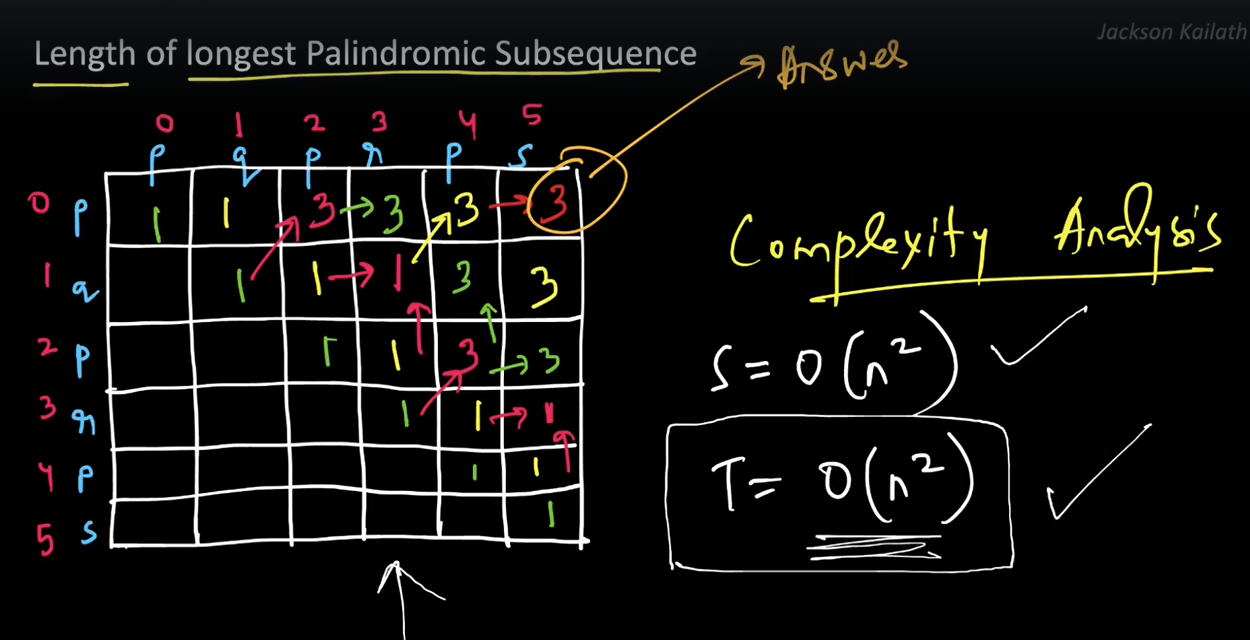 Jackson Kailath
Length of longest Palindromic Subsequence
Answer
0 1 2 3 4 5
p q p r p s
0 p 1 1 3 3 3 3
1 q 1 1 1 3 3
2 p 1 1 3 3
3 r 1 1 1
4 p 1 1
5 s 1
Complexity Analysis
S = O(n²)
T = O(n²)